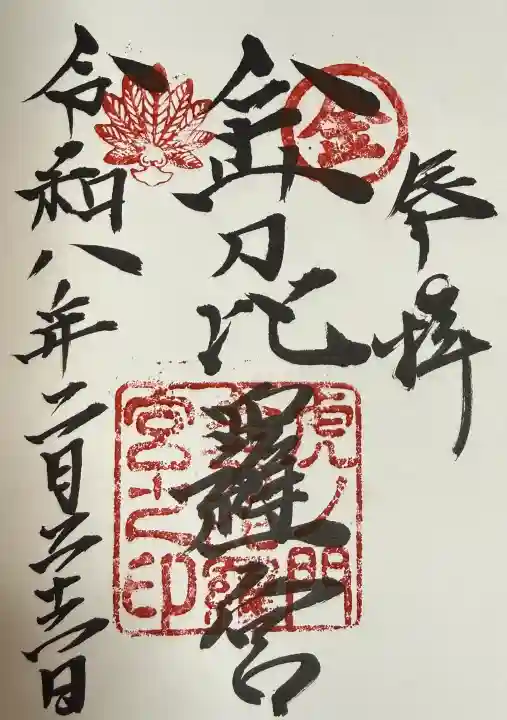 奉拝
金
金刀比羅宮
虎ノ門
宮之印
令和八年二月二十六日